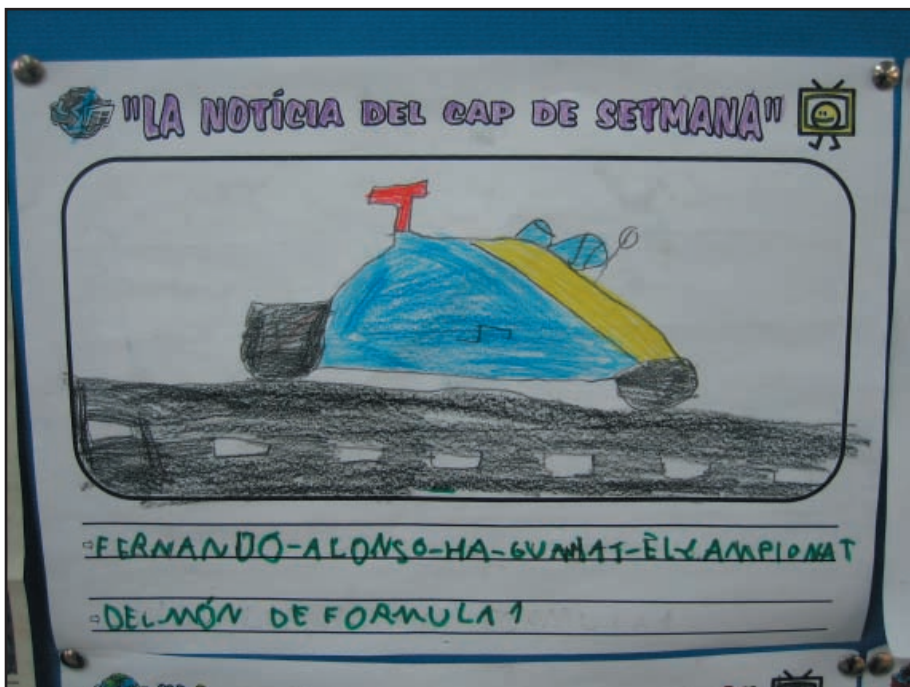 "LA NOTÍCIA DEL CAP DE SETMANA"
FERNANDO-ALONSO-HA-GUANNAT-ÈL CAMPIONAT
DEL MÓN DE FORMULA 1